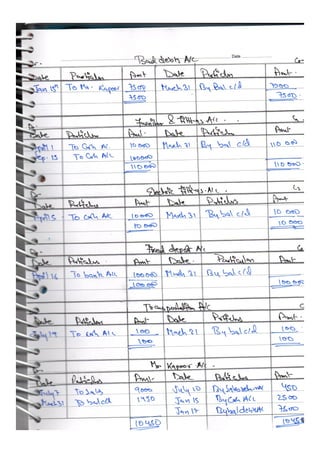 Date
Dr. Bad debts A/c Cr.
Date Particulars Amt Date Particulars Amt.
Jan 15th To Mr. Kapoor 7500 March 31 By Bal c/d 7500
7500 7500
Furniture & fittings A/c. Cr
Date Particulars Amt. Date Particulars Amt
April 1 To Cash A/c 10 000 March 31 By bal c/d 110 000
Sep. 15 To Cash A/c 100000
110 000 110 000.
Electric fittings A/c. Cr
Date Particulars Amt Date Particulars Amt
April 5 To Cash A/c 10 000 March 31 By bal c/d 10 000
10 000 10 000
Fixed deposit A/c Cr
Date Particulars. Amt Date. Particulars Amt.
April 16 To bank A/c 100 000 March 31 By bal c/d 100 000
100 000
Transportation A/c C
Date Particulars Amt Date Particulars Amt.
July 19 To Cash A/c 100 March 31 By bal c/d 100
100 100
Mr. Kapoor A/c.
Date Particulars Amt. Date Particulars Amt
July 7 To Sales 9000 July 10 450
March 31 To bal c/d 1450 Jan 15 By Cash A/c 2500
Jan 17 7500
10450 10450